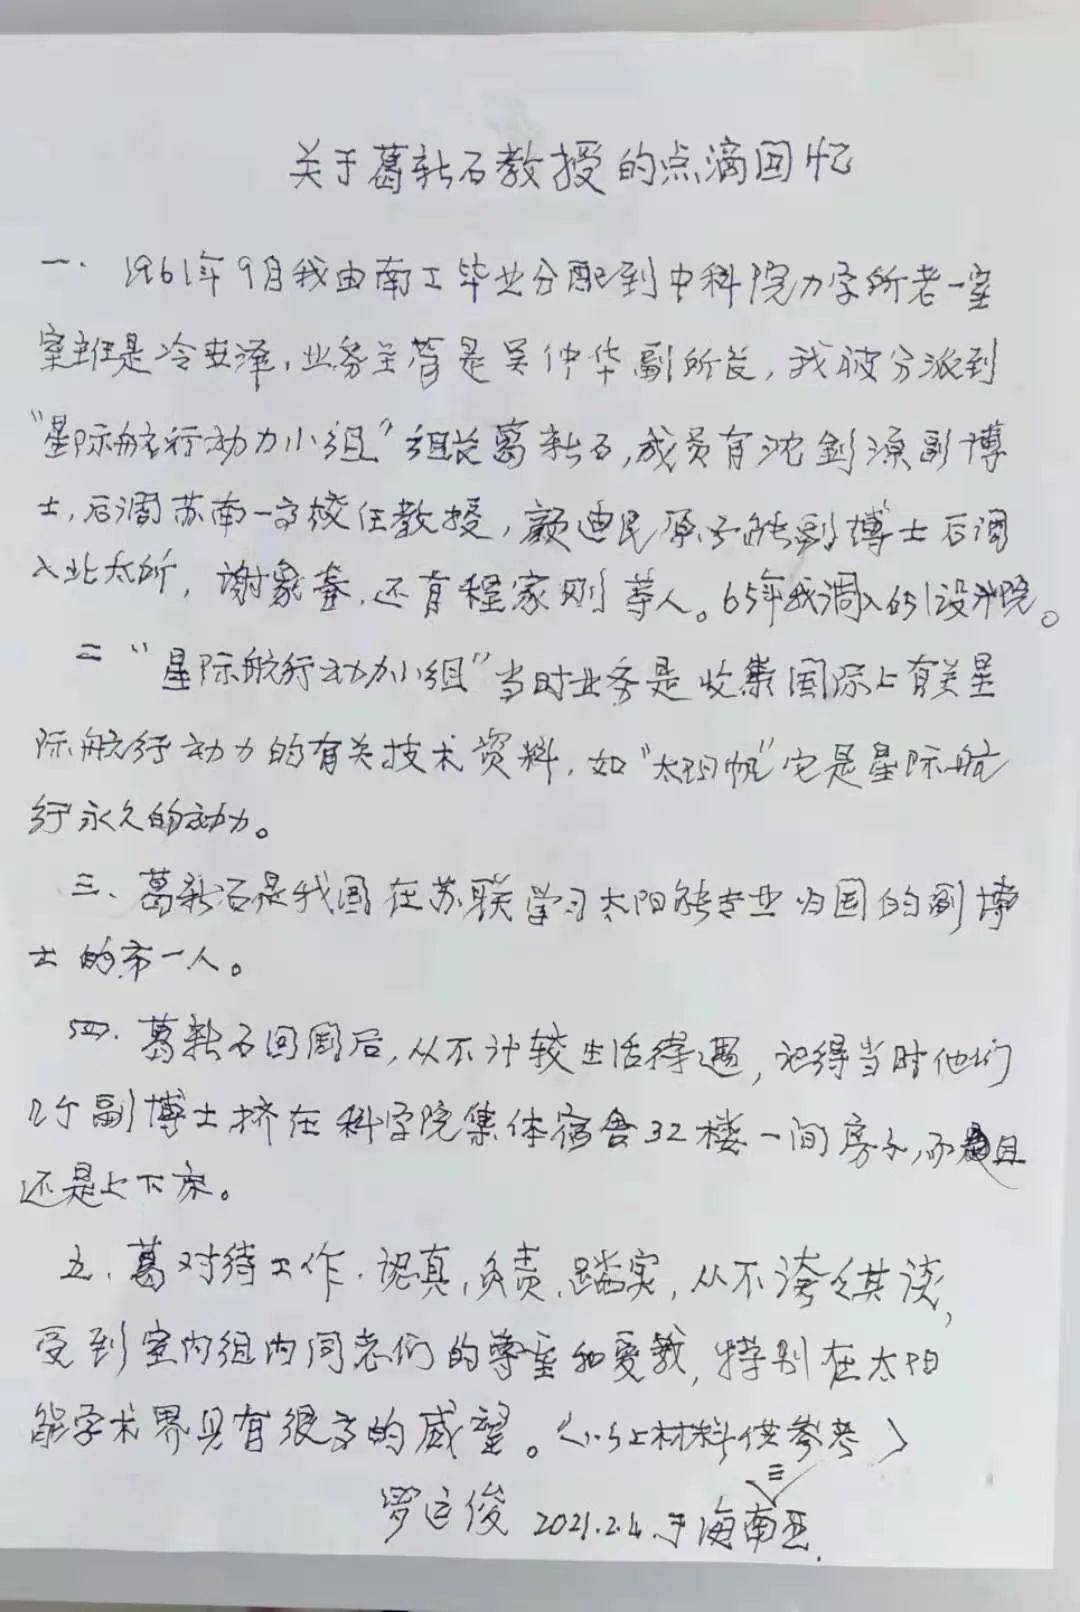 关于葛新石教授的点滴回忆
一、1961年9月我由南工毕业分配到中科院力学所老一室
室班是冷亚泽,业务主管是吴仲华副所长,我被分派到
“星际航行动力小组”组长葛新石,成员有沈剑源副博
士,后调苏南一高校任教授,颜迪民原子能副博士后调
入北太所,谢象春,还有程家刚等人。65年我调入651设计院。
二“星际航行动力小组”当时业务是收集国际上有关星
际航行动力的有关技术资料,如“太阳帆”它是星际航
行永久的动力。
三、葛新石是我国在苏联学习太阳能专业归国的副博
士的第一人。
四、葛新石回国后,从不计较生活待遇,记得当时他们
几个副博士挤在科学院集体宿舍32楼一间房子,而且
还是上下床。
五、葛对待工作.认真,负责,踏实,从不夸夸其谈,
受到室内组内同志们的尊重和爱戴,特别在太阳
能学术界具有很高的威望。(以上材料供参考)
罗运俊 2021.2.4.于海南三亚.